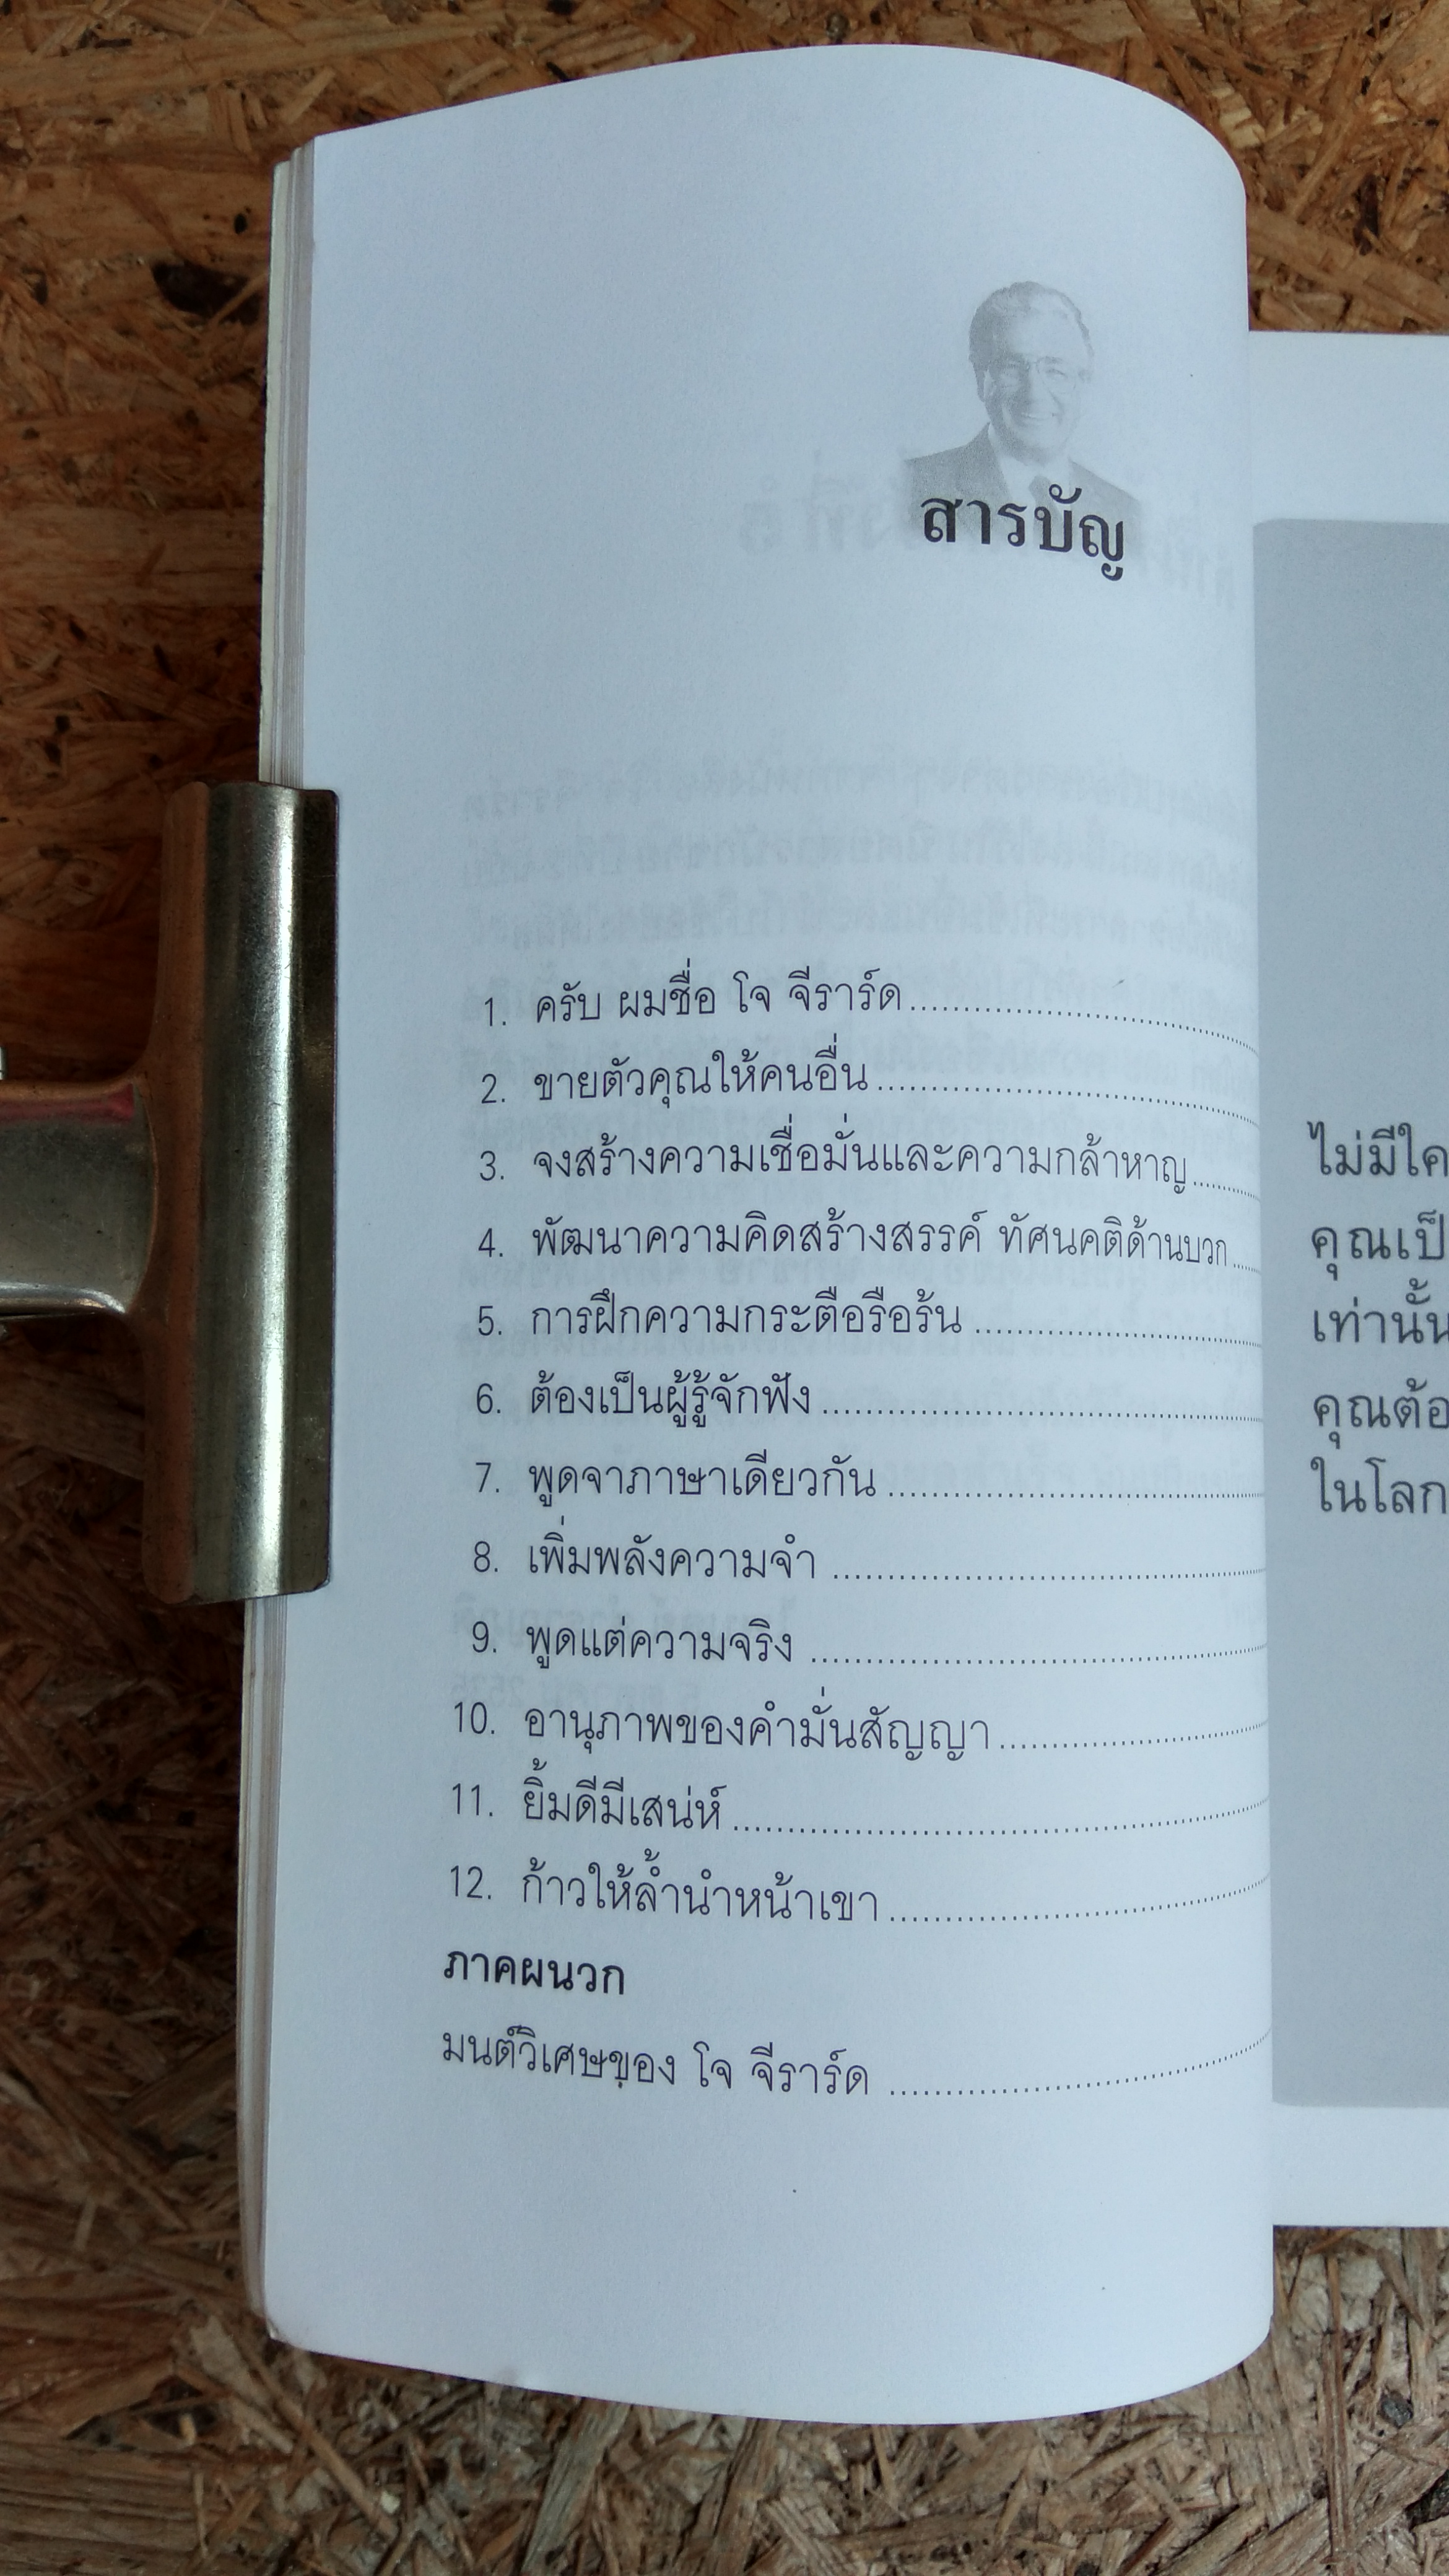 สารบัญ
1. ครับ ผมชื่อ โจ จีราร์ด
2. ขายตัวคุณให้คนอื่น
3. จงสร้างความเชื่อมั่นและความกล้าหาญ
4. พัฒนาความคิดสร้างสรรค์ ทัศนคติด้านบวก
5. การฝึกความกระตือรือร้น
6. ต้องเป็นผู้รู้จักฟัง
7. พูดจาภาษาเดียวกัน
8. เพิ่มพลังความจำ
9. พูดแต่ความจริง
10. อานุภาพของคำมั่นสัญญา
11. ยิ้มดีมีเสน่ห์
12. ก้าวให้ล้ำนำหน้าเขา
ภาคผนวก
มนต์วิเศษของ โจ จีราร์ด
ไม่มีใค
คุณเป็
เท่านั้น
คุณต้อ
ในโลก